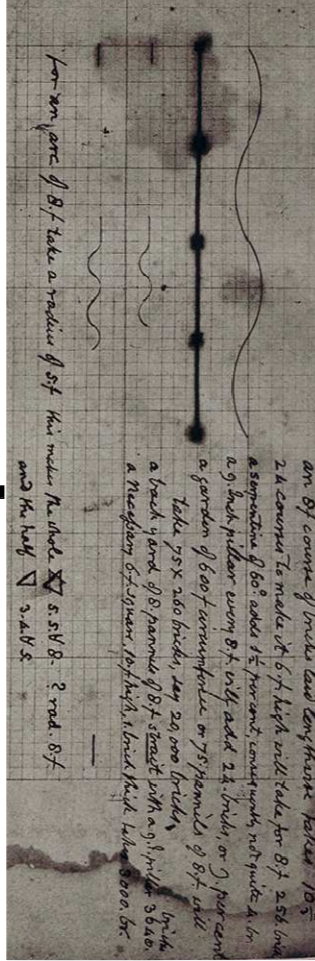 an 8f course of bricks laid lengthwise takes 10½
24 courses to make it 6 f high will take for 8 f 256 bricks
a serpentine of 60° adds 1½ per cent, consequently not quite 4. br
a 9. inch pillar every 8 f. will add 24. bricks, or 9 per cent
a garden of 600 f circumference or 75. pannels of 8 f will
take 75 X 260 bricks, say 20,000 bricks,
a back yard of 8. pannels of 8 f. strait with a 9 I. pillar 3640. bricks
a necessary 6 f. square, 10 f high, 1. brick thick takes 3000. br.
for an arc of 8. f take a radius of 5 f this makes the whole 5. 5. & 8 - ? rad. 8 f
and the half 3. 4. & 5.